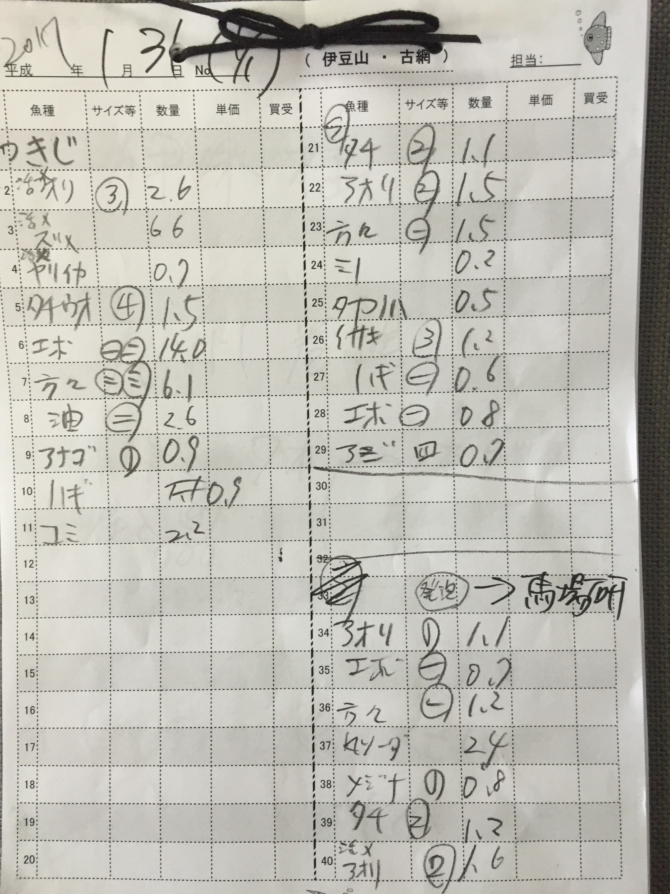 2017 1 31
平成 年 月 日 No. ( 伊豆山 ・ 古網 ) 担当:
魚種 サイズ等 数量 単価 買受
うきじ
2 活〆 アオリ ③ 2.6
3 活〆 ズメ 66
4 ヤリイカ 0.7
5 タチウオ ④ 1.5
6 エボ ㊀㊁ 14.0
7 方々 ㊂㊂ 6.1
8 油 ㊁ 2.6
9 アナゴ ① 0.9
10 ハギ 0.9
11 コミ 2.2
12
13
14
15
16
17
18
19
20
魚種 サイズ等 数量 単価 買受
21 タチ ② 1.1
22 アオリ ② 1.5
23 方々 ㊀ 1.5
24 0.2
25 0.5
26 イサキ ③ 1.2
27 ハギ ㊀ 0.6
28 エボ ㊀ 0.8
29 アジ 四 0.7
30
31
32
33 → 馬場
34 アオリ ① 1.1
35 エボ ㊀ 0.7
36 方々 ㊀ 1.2
37 ソーダ 24
38 メジナ ① 0.8
39 タチ ② 1.2
40 活〆 アオリ ② 1.6